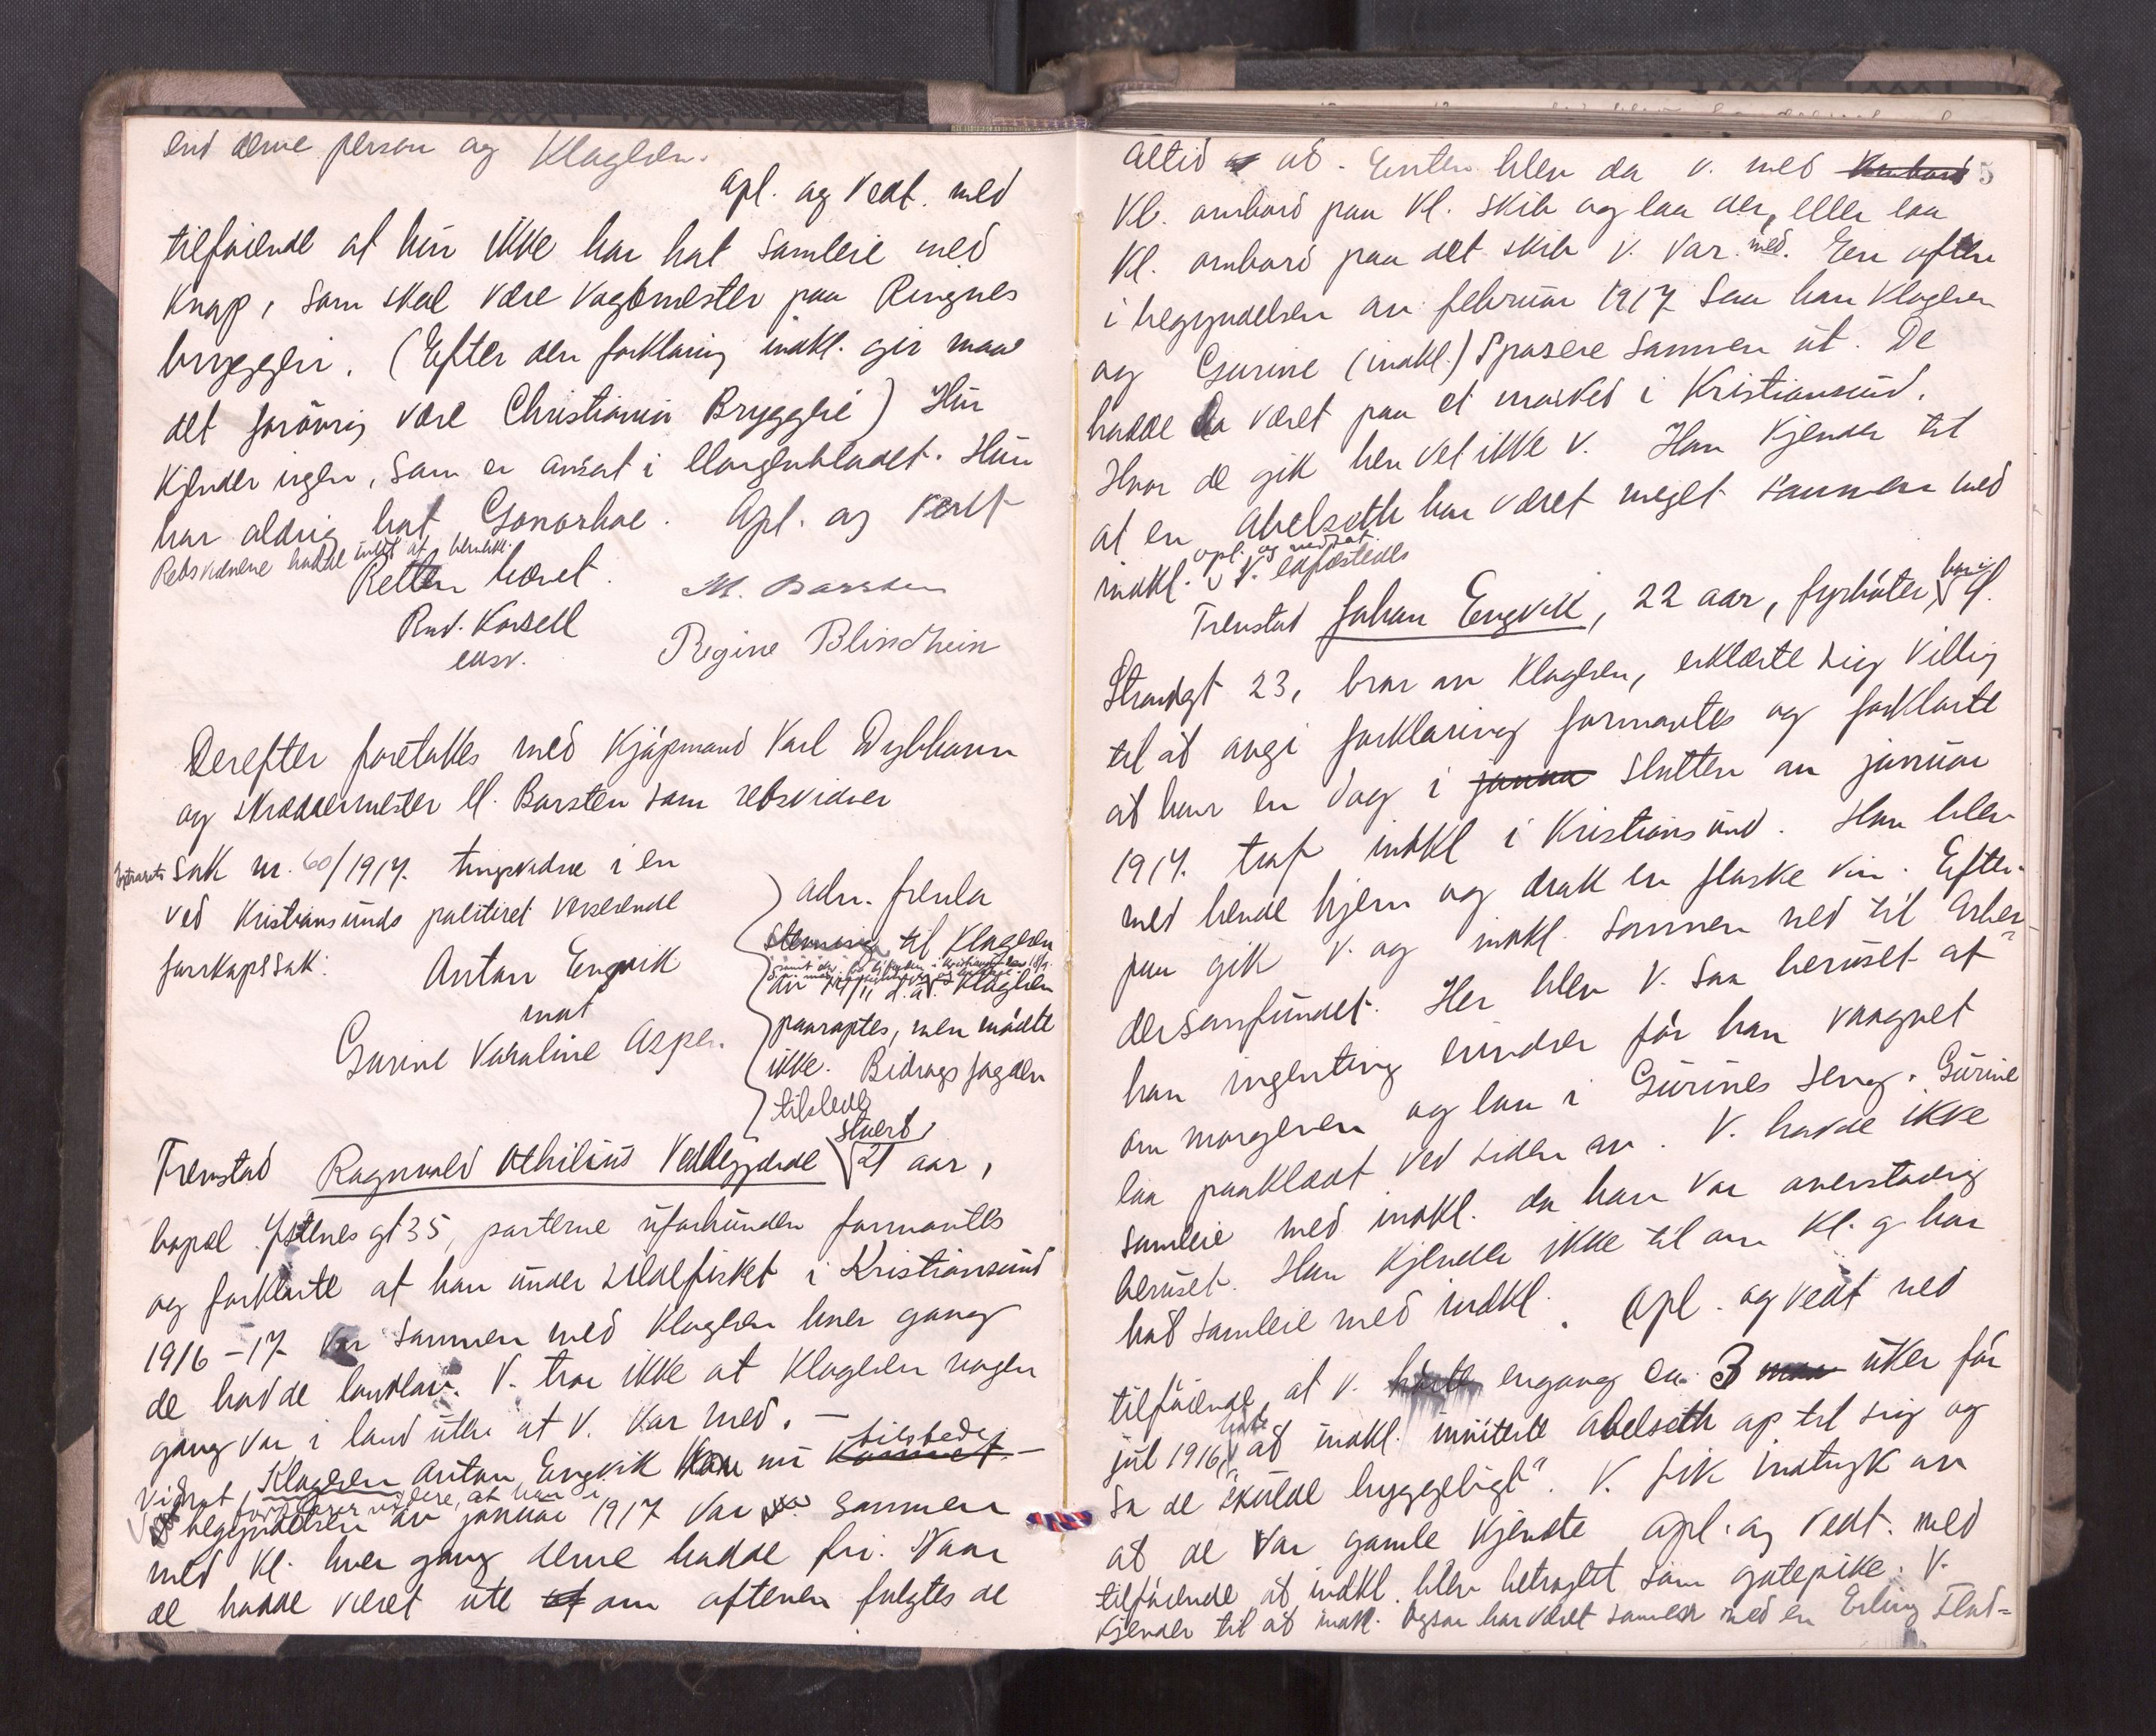 end denne person og Klageren.
Opl. og vedt. med
tilføiende at hun ikke har hat samleie med
Knap, som skal være vagtmester paa Ringnes
bryggeri. (Efter den forklaring indkl. gir maa
det forøvrig være Christiania Bryggeri) Hun
kjender ingen, som er ansat i Morgenbladet. Hun
har aldrig hat Gonorhoe. Opl. og vedt
Retsvidnene hadde intet at bemerke.
Retten hævet.
M. Barsten
Rud. Korsell
Regine Blindheim
Derefter foretokes med Kjøpmand Karl Dybhavn
og skræddermester M. Barsten som retsvidner
Extrarets Sak nr. 60/1917. tingsvidne i en
ved Kristiansunds politiret verserende
farskapssak:
Anton Engvik
mot
Gurine Karoline Aspen.
adv. frenla
Stevning til Klageren
av 14/11 d.a. Klageren
paaroptes, men mødte
ikke. Bidragsfogden
tilstede
Fremstod Ragnvald Othilius Veddegjerde 21 aar, stuert
bopæl Ystenes gt 35, parterne uforbunden formantes
og forklarte at han under sildefisket i Kristiansund
1916-17 var sammen med Klageren hver gang
de hadde landlov. V. tror ikke at Klageren nogen
gang var i land uten at V. var med. —
Klageren Anton Engvik kom nu tilstede —
Vidnet forklarer videre, at han i
begyndelsen av januar 1917 var sammen
med Kl. hver gang denne hadde fri. Naar
de hadde været ute om aftenen fulgtes de
altid ad. Enten blev da V. med ombord 5
Kl. ombord paa Kl. skib og laa der, eller laa
Kl. ombord paa det skib V. var med. En aften
i begyndelsen av februar 1917 saa han Klageren
og Gurine (indkl.) spasere sammen ut. De
hadde da været paa et marked i Kristiansund.
Hvor de gik hen vet ikke V. Han kjender til
at en Abelseth har været meget sammen med
indkl. opl. og vedtat. V. entlededes
Fremstod Johan Engvik, 22 aar, fyrbøter, bor i
Strandgt 23, bror av Klageren, erklærte sig villig
til at avgi forklaring formantes og forklarte
at han en dag i slutten av januar
1917. traf indkl i Kristiansund. Han blev
med hende hjem og drak en flaske vin. Efter-
paa gik V. og indkl. sammen ned til Arbei-
dersamfundet. Her blev V. saa beruset at
han ingenting erindrer før han vaagnet
om morgenen og laa i Gurines seng. Gurine
laa paaklædt ved siden av. V. hadde ikke
samleie med indkl. da han var overstadig
beruset. Han kjender ikke til om Kl. g har
hat samleie med indkl. Opl. og vedt ved
tilføiende at V. hørte engang ca. 3 uker før
jul 1916, at indkl. inviterte Abelseth op til sig og
sa de "skulde hyggeligt". V. fik indtryk av
at de var gamle kjendte opl. og vedt. med
tilføiende at indkl. blev betragtet som gatepike. V.
kjender til at indkl. ogsaa har været sammen med en Erling Flat-